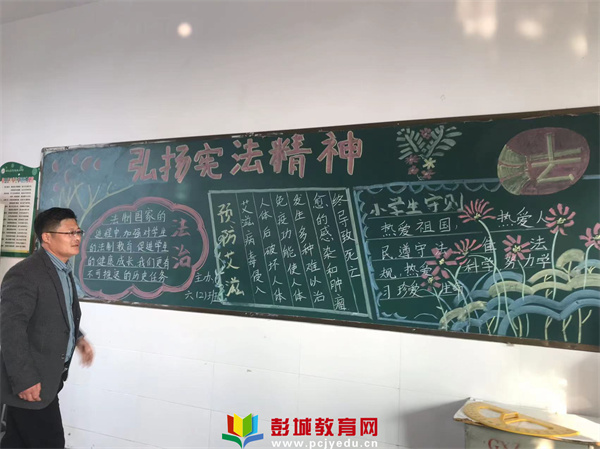 弘扬宪法精神
法制国家的
进程中加强对学生
的法制教育促进学生
的健康成长我们更有
不可推迟的历史任务
法治
主办
六(2)班
预防艾滋
艾滋病毒侵入
人体后破坏人体
免疫功能使人体
发生多种难以治
愈的感染和肿瘤
终已致死亡
小学生守则
热爱祖国, 热爱人
民遵守法 法
规, 热爱 科学 努力学
习珍爱
彭城教育网
www.pcjyedu.cn